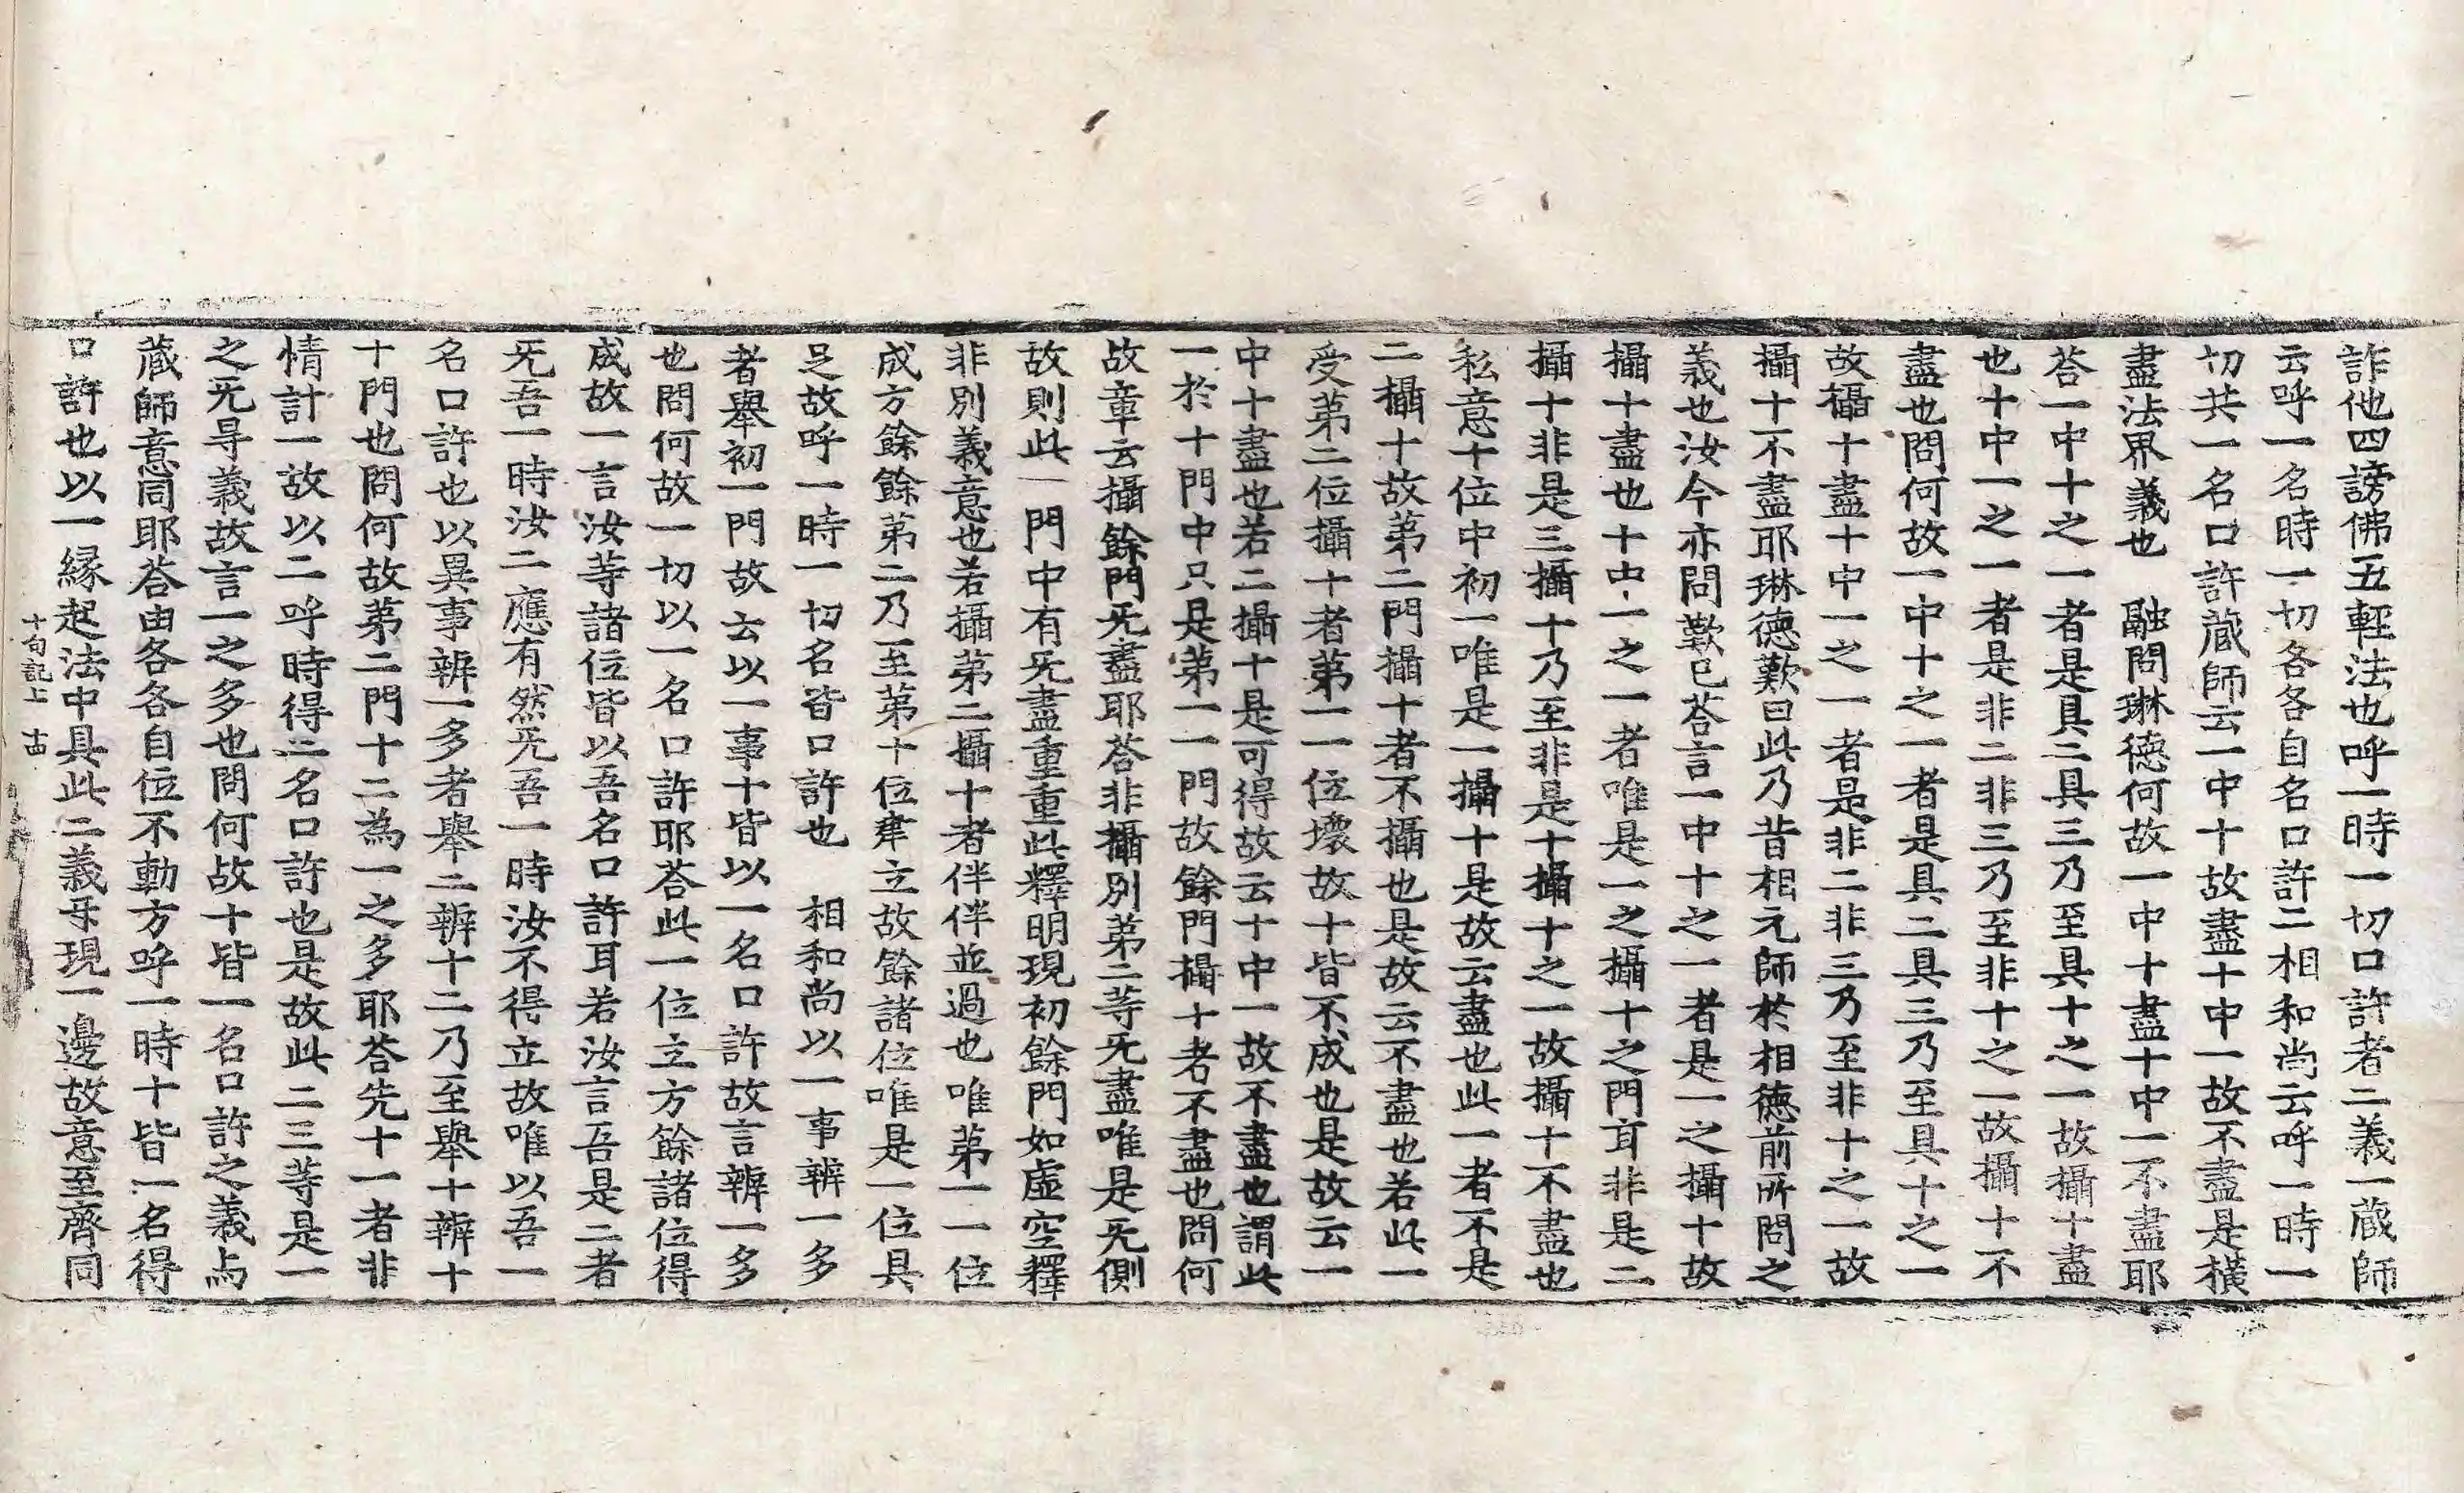 詐他四謗佛五輕法也呼一時一切口許者二義一蔵師
云呼一名時一切各各自名口許二相和尚云呼一時一
切共一名口許蔵師云一中十故盡十中一故不盡是橫
盡法界義也 融問琳德何故一中十盡十中一不盡耶
荅一中十之一者是具二具三乃至具十之一故攝十盡
也十中一之一者是非二非三乃至非十之一故攝十不
盡也問何故一中十之一者是具二具三乃至具十之一
故攝十盡十中一之一者是非二非三乃至非十之一故
攝十不盡耶琳德歎曰此乃昔相元師於相德前所問之
義也汝今亦問歎已荅言一中十之一者是一之攝十故
攝十盡也十中一之一者唯是一之攝十之門耳非是二
攝十非是三攝十乃至非是十攝十之一故攝十不盡也
私意十位中初一唯是一攝十是故云盡也此一者不是
二攝十故第二門攝十者不攝也是故云不盡也若此一
受第二位攝十者第一一位壞故十皆不成也是故云一
中十盡也若二攝十是可得故云十中一故不盡也謂此
一於十門中只是第一一門故餘門攝十者不盡也問何
故章云攝餘門无盡耶荅非攝別第二等无盡唯是无側
故則此一門中有无盡重重此釋明現初餘門如虛空釋
非別義意也若攝第二攝十者伴伴並過也唯第一一位
成方餘餘第二乃至第十位聿立故餘諸位唯是一位具
足故呼一時一切名皆口許也 相和尚以一事辨一多
者舉初一門故云以一事十皆以一名口許故言辨一多
也問何故一切以一名口許耶荅此一位立方餘諸位得
成故一言汝等諸位皆以吾名口許耳若汝言吾是二者
无吾一時汝二應有然无吾一時汝不得立故唯以吾一
名口許也以異事辨一多者舉二辨十二乃至舉十辨十
十門也問何故第二門十二為一之多耶荅先十一者非
情計一故以二呼時得二名口許也是故此二三等是一
之无㝵義故言一之多也問何故十皆一名口許之義与
蔵師意同耶荅由各各自位不動方呼一時十皆一名得
口許也以一縁起法中具此二義㸦現一邊故意至齊同
十句記上 十四